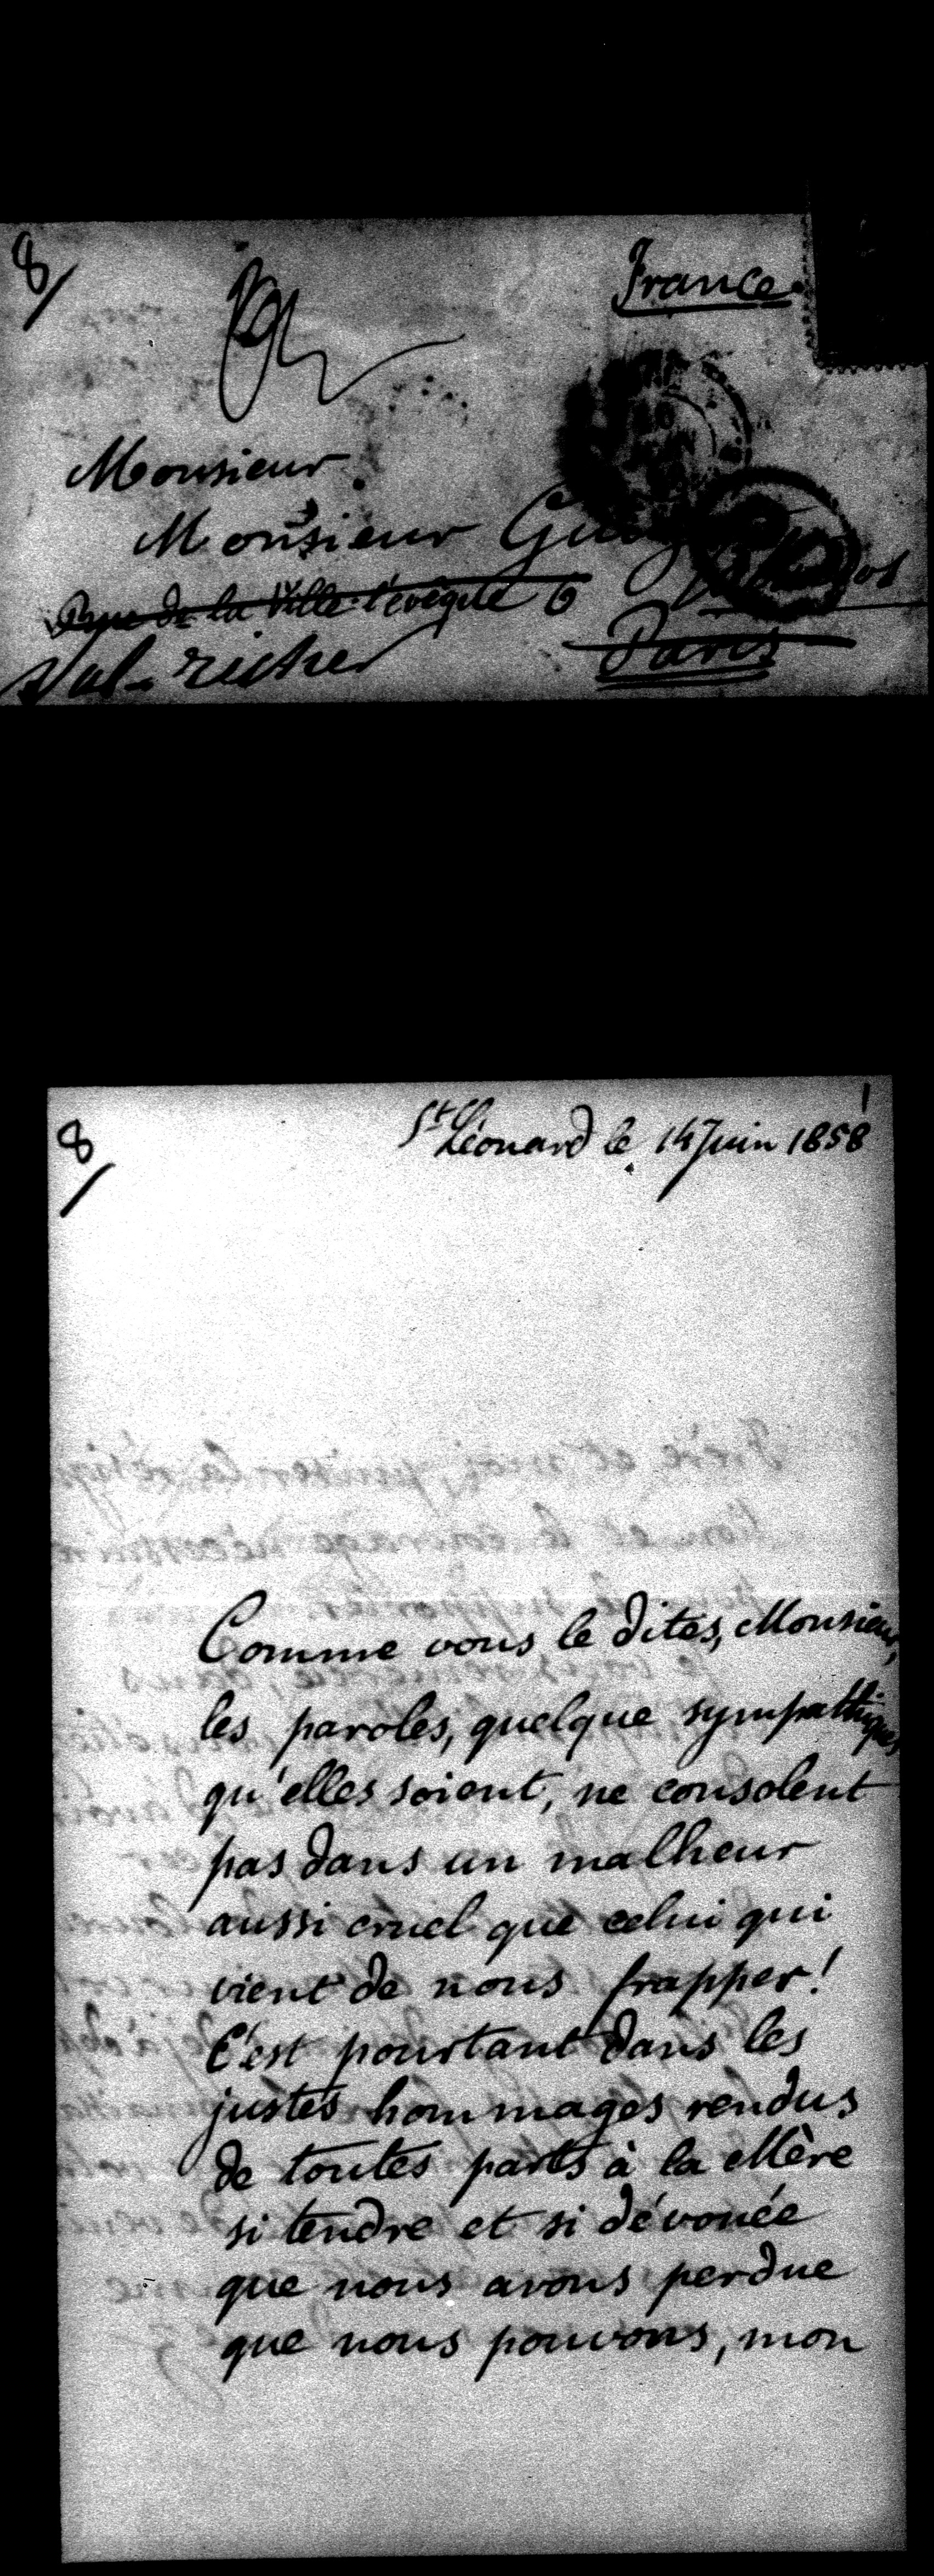 8/
France
Monsieur
Monsieur
Rue de la Ville-l'évêque 6
Val-richer
Paris
8/
1
St Léonard le 14 Juin 1858
Comme vous le dites, Monsieur,
les paroles, quelque sympathiques
qu'elles soient, ne consolent
pas dans un malheur
aussi cruel que celui qui
vient de nous frapper!
C'est pourtant dans les
justes hommages rendus
de toutes parts à la Mère
si tendre et si dévouée
que nous avons perdue
que nous pouvons, mon